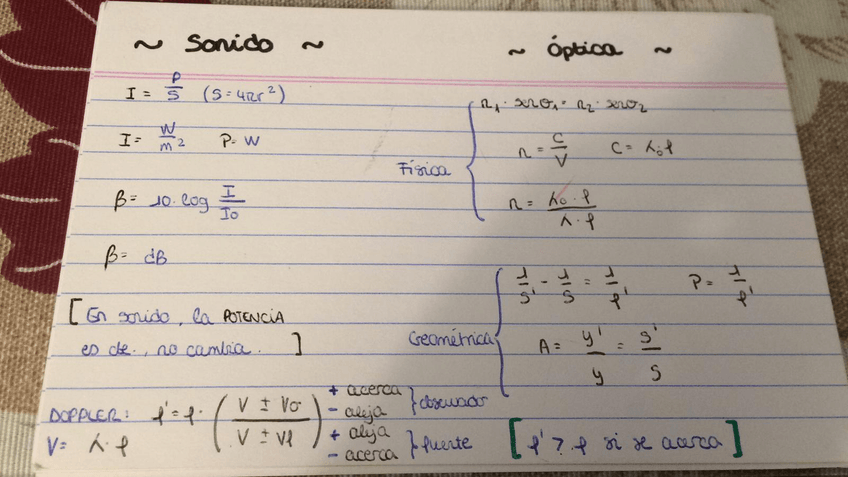 ~ Sonido ~
I = P/S (S = 4πr²)
I = W/m² P = W
β = 10·log I/I₀
β = dB
[En sonido, la POTENCIA
es cte., no cambia.]
DOPPLER: f' = f · (V ± Vo / V ± Vf) + acerca - aleja } observador + aleja - acerca } fuente
V = λ · f
[f' > f si se acerca]
~ Óptica ~
Física { n₁ · senσ₁ = n₂ · senσ₂
n = C/V C = λ₀f
n = λ₀ · f / λ · f
Geométrica { 1/S' - 1/S = 1/f' P = 1/f'
A = y'/y = S'/S